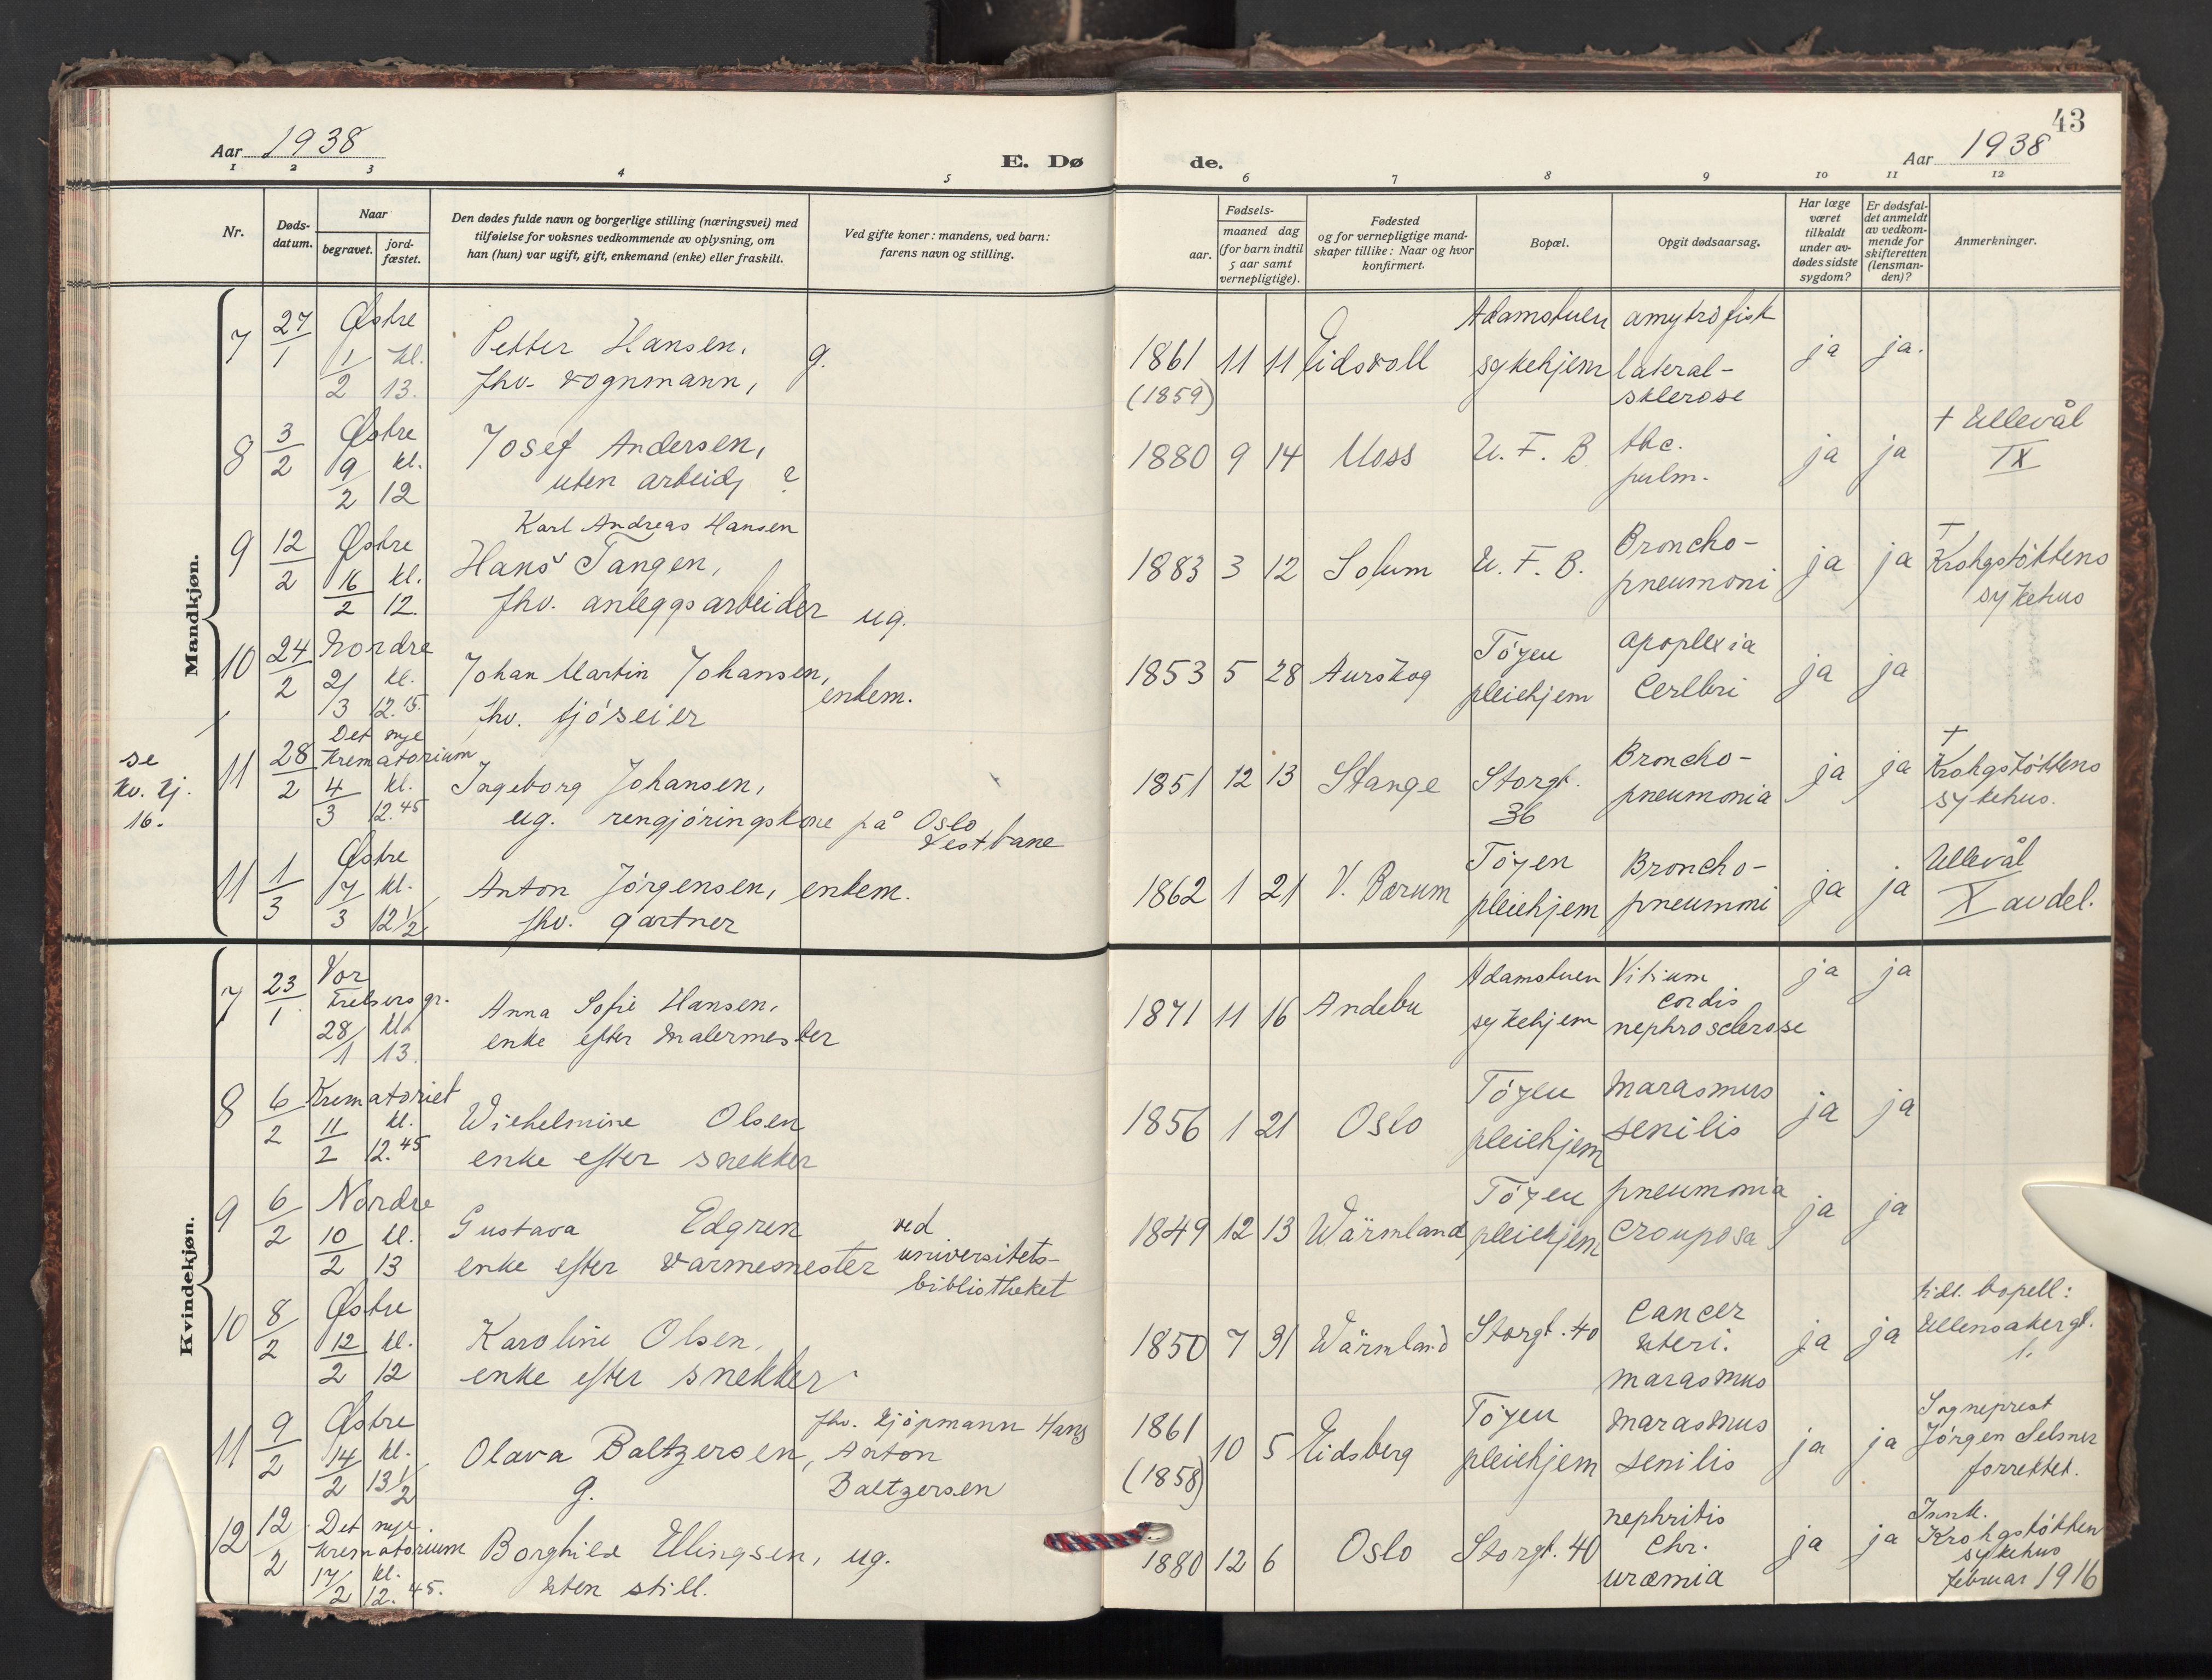 43
Aar 1938
E. Dø
de.
Aar 1938
1 2 3 4 5 6 7 8 9 10 11 12
Nr.
Døds-
datum.
Naar
begravet.
jord-
fæstet.
Den dødes fulde navn og borgerlige stilling (næringsvei) med
tilføielse for voksnes vedkommende av oplysning, om
han (hun) var ugift, gift, enkemand (enke) eller fraskilt.
Ved gifte koner: mandens, ved barn:
farens navn og stilling.
Fødsels-
aar.
maaned dag
(for barn indtil
5 aar samt
vernepligtige).
Fødested
og for vernepligtige mand-
skaper tillike: Naar og hvor
konfirmert.
Bopæl.
Opgit dødsaarsag.
Har læge
været
tilkaldt
under av-
dødes sidste
sygdom?
Er dødsfal-
det anmeldt
av vedkom-
mende for
skifteretten
(lensman-
den)?
Anmerkninger.
Mandkjøn.
7 27/1 Østre 1/2 kl. 13.
Petter Hansen,
fhv. vognmann, g.
1861 (1859) 11 11 Eidsvoll
Adamstuen
sykehjem
amytrofisk
lateral-
sklerose
ja ja.
8 3/2 Østre 9/2 kl. 12
Josef Andersen,
uten arbeid, ?
1880 9 14 Moss U. F. B.
tbc.
pulm.
ja ja
+ Ullevål
IX
9 12/2 Østre 16/2 kl. 12.
Karl Andreas Hansen
Hans Tangen,
fhv. anleggsarbeider ug.
1883 3 12 Solum U. F. B.
Broncho-
pneumoni
ja ja
+
Krohgstøttens
sykehus
10 24/2 Nordre 2/3 kl. 12.15.
Johan Martin Johansen,
fhv. fjøseier enkem.
1853 5 28 Aurskog
Tøyen
pleiehjem
apoplexia
Cerebri
ja ja
se
kv. kj.
16.
11 28/2 Det nye
Krematorium
4/3 kl. 12.45
Ingeborg Johansen,
ug. rengjøringskone på Oslo
Vestbane
1851 12 13 Stange
Storgt.
36
Broncho-
pneumonia
ja ja
+
Krohgstøttens
sykehus.
11 1/3 Østre 7/3 kl. 12 1/2
Anton Jørgensen, enkem.
fhv. gartner
1862 1 21 V. Bærum
Tøyen
pleiehjem
Broncho-
pneumoni
ja ja
Ullevål
X avdel.
Kvindekjøn.
7 23/1 Vor
Frelsers gr.
28/1 kl. 13.
Anna Sofie Hansen,
enke efter malermester
1871 11 16 Andebu
Adamstuen
sykehjem
Vitium
cordis
nephrosclerose
ja ja
8 6/2 Krematoriet
11/2 kl. 12.45
Wilhelmine Olsen
enke efter snekker
1856 1 21 Oslo
Tøyen
pleiehjem
marasmus
senilis
ja ja
9 6/2 Nordre 10/2 kl. 13
Gustava Edgren
enke efter varmemester
ved
universitets-
bibliotheket
1849 12 13 Wärmland
Tøyen
pleiehjem
pneumonia
crouposa
ja ja
10 8/2 Østre 12/2 kl. 12
Karoline Olsen,
enke efter snekker
1850 7 31 Wärmland Storgt. 40
Cancer
uteri.
marasmus
ja ja
tidl. bopell:
Ullensakergt.
1.
11 9/2 Østre 14/2 kl. 13 1/2
Olava Baltzersen,
g.
fhv. kjøpmann Hans
Anton
Baltzersen
1861 (1858) 10 5 Eidsberg
Tøyen
pleiehjem
marasmus
senilis
ja ja
Sogneprest
Jørgen Selsner
forrettet.
12 12/2 Det nye
Krematorium
17/2 kl. 12.45.
Borghild Ellingsen, ug.
uten still.
1880 12 6 Oslo Storgt. 40
nephritis
chr.
uræmia
ja ja
Innk.
Krohgstøtten
sykehus
februar 1916